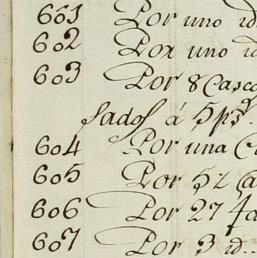 601 Por uno id
602 Por uno id
603 Por 8 Casc
sados á 5 ps.
604 Por una C
605 Por 52 Ca
606 Por 27 fa
607 Por 3 id..